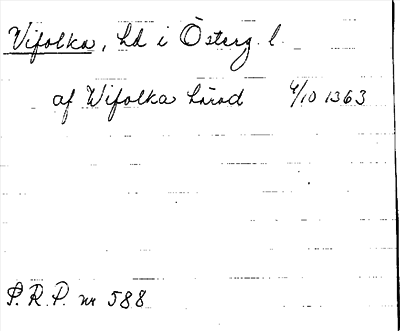 Vifolka, hd i Österg. l.
af Wifolka härad 4/10 1363
P.R.P. nr 588